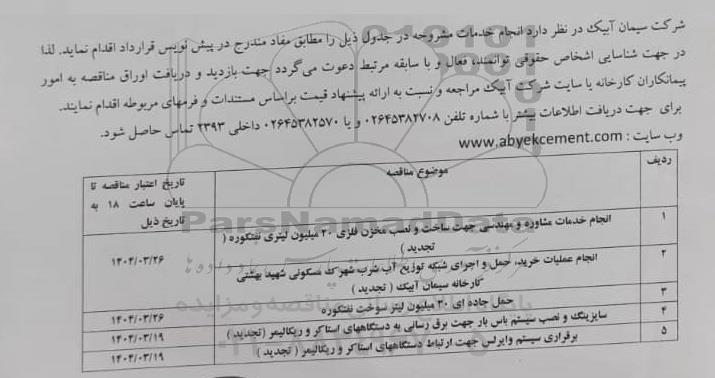 شرکت سیمان آبیک در نظر دارد انجام خدمات مشروحه در جدول ذیل را مطابق مفاد مندرج در پیش نویس قرارداد اقدام نماید. لذا
در جهت شناسایی اشخاص حقوقی توانمند، فعال و با سابقه مرتبط دعوت می‌گردد جهت بازدید و دریافت اوراق مناقصه به امور
پیمانکاران کارخانه یا سایت شرکت آبیک مراجعه و نسبت به ارائه پیشنهاد قیمت براساس مستندات و فرمهای مربوطه اقدام نمایند.
برای جهت دریافت اطلاعات بیشتر با شماره تلفن ۰۲۶۴۵۳۸۲۷۰۸ و یا ۰۲۶۴۵۳۸۲۵۷۰ داخلی ۲۳۹۳ تماس حاصل شود.
وب سایت : www.abyekcement.com
ردیف موضوع مناقصه تاریخ اعتبار مناقصه تا
پایان ساعت ۱۸ به
تاریخ ذیل
۱ انجام خدمات مشاوره و مهندسی جهت ساخت و نصب مخزن فلزی ۲۰ میلیون لیتری نفتکوره (
تجدید )
۲ انجام عملیات خرید، حمل و اجرای شبکه توزیع آب شرب شهرک مسکونی شهید بهشتی ۱۴۰۴/۰۳/۲۶
کارخانه سیمان آبیک ( تجدید )
۳ حمل جاده ای ۳۰ میلیون لیتر سوخت نفتکوره ۱۴۰۴/۰۳/۲۶
۴ سایزینگ و نصب سیستم باس بار جهت برق رسانی به دستگاههای استاکر و ریکلایمر (تجدید ) ۱۴۰۴/۰۳/۱۹
۵ برقراری سیستم وایرلس جهت ارتباط دستگاههای استاکر و ریکلایمر ( تجدید ) ۱۴۰۴/۰۳/۱۹
ParsNamadData